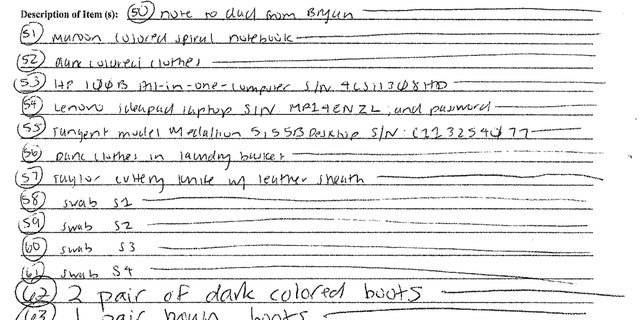 Description of Item (s): 50 note to dad from Bryan
51 Maroon colored spiral notebook
52 Dark colored clothes
53 HP 100B All-in-one-computer S/N
54 Lenovo ideapad laptop S/N MP14ENZL, and password
55 Tangent model Medallion 5155B Desktop S/N:
56 Dark clothes in laundry basket
57 Taylor cutlery knife w/ leather sheath
58 swab S1
59 swab S2
60 swab S3
61 swab S4
62 2 pair of dark colored boots
63 1 pair brown boots